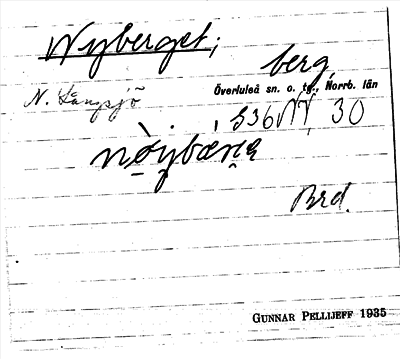 Nyberget;
berg
N. Långsjö Överluleå sn. o. tg., Norrb. län
Brd.
GUNNAR PELLIJEFF 1935